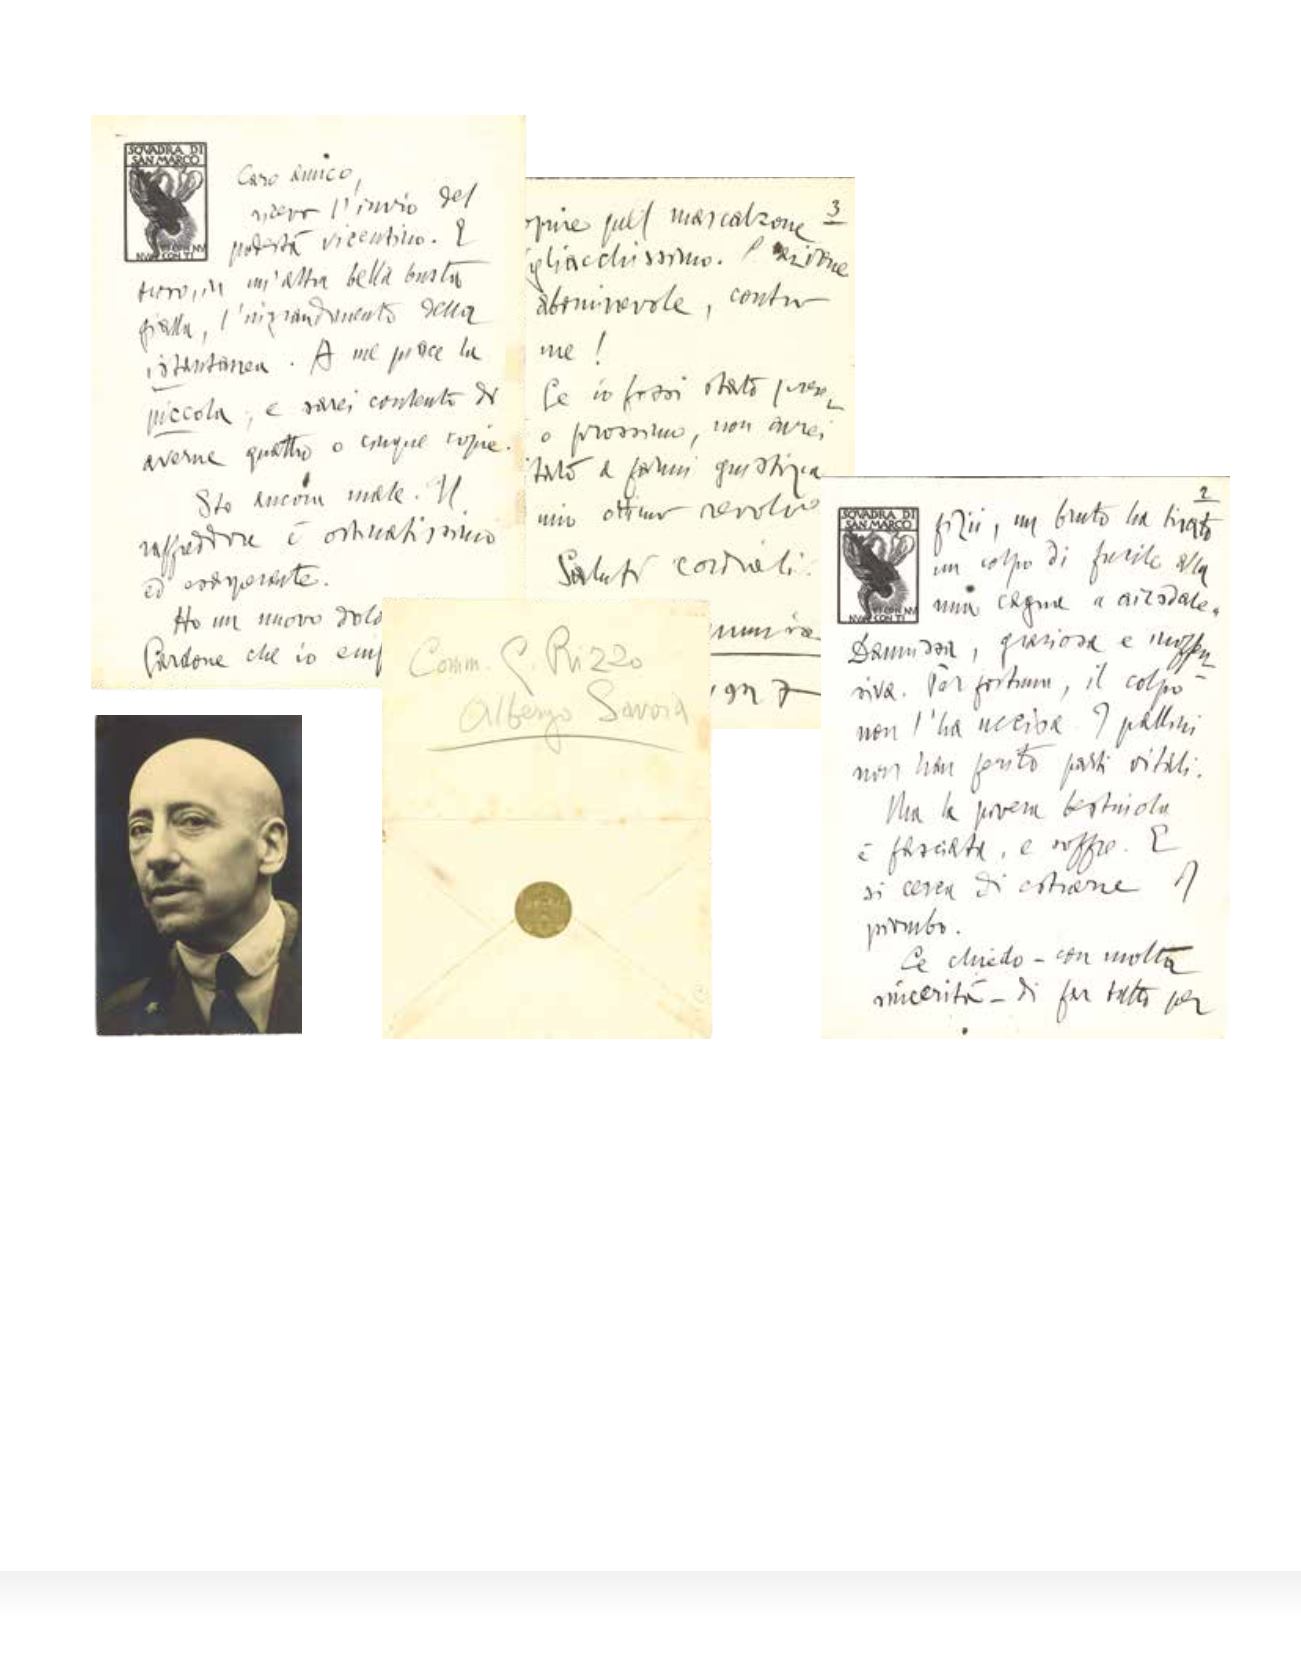 SQVADRA DI
SAN MARCO
Caro amico,
ricevo l'invio del
podestà vicentino. E
trovo, in un'altra bella busta
gialla, l'ingrandimento della
istantanea. A me piace la
piccola, e sarei contento di
averne quattro o cinque copie.
Sto ancora male. Il
raffreddore è ostinatissimo
ed esasperante.
Ho un nuovo dolo
Cardone che io emp
2
SQVADRA DI
SAN MARCO
fizii, un bruto ha tirato
un colpo di fucile alla
mia cagna a airedale,
Dannissa, graziosa e inoffen
siva. Per fortuna, il colpo
non l'ha uccisa. I pallini
non han ferito parti vitali.
Ma la povera bestiola
è fasciata, e soffre. E
si cerca di estrarne il
piombo.
Le chiedo – con molta
sincerità – di far tutto per
3
oprire quel mascalzone
gliacchissimo. È azione
abominevole, contro
me!
Se io fossi stato prese
o prossimo, non avrei
tato a farmi giustizia
mio ottimo revolve
Saluti cordiali.
nunzio
1927
Comm. G. Rizzo
Albergo Savoia